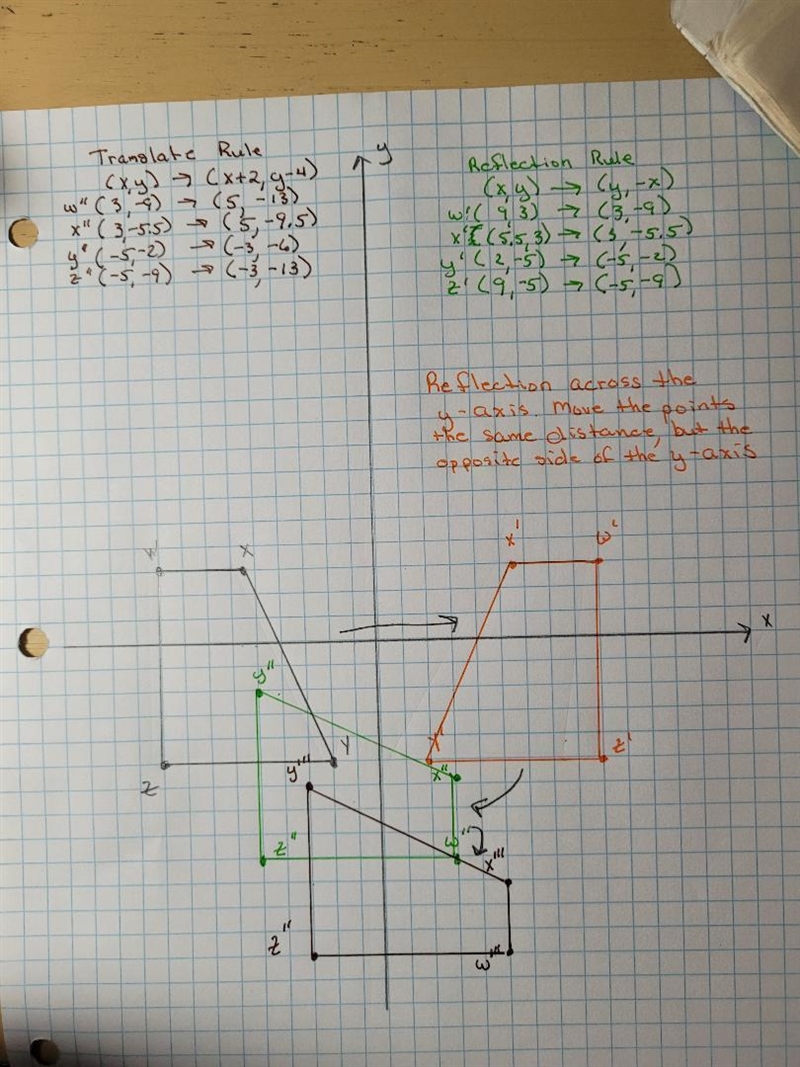 Translate Rule
(x,y) → (x+2, y-4)
w" (3,-9) → (5, -13)
x" (3,-5.5) → (5,-9.5)
y" (-5,-2) → (-3, -6)
z" (-5,-9) → (-3,-13)
y
Reflection Rule
(x,y) → (y,-x)
w' (9,3) → (3,-9)
x' (5.5,3) → (3,-5.5)
y' (2,-5) → (-5,-2)
z' (9,-5) → (-5,-9)
Reflection across the
y-axis. Move the points
the same distance, but the
opposite side of the y-axis
W X
x' w'
x
y"
Y
z'
Z
y'''
x"
z" w"
x'''
z"
w'''